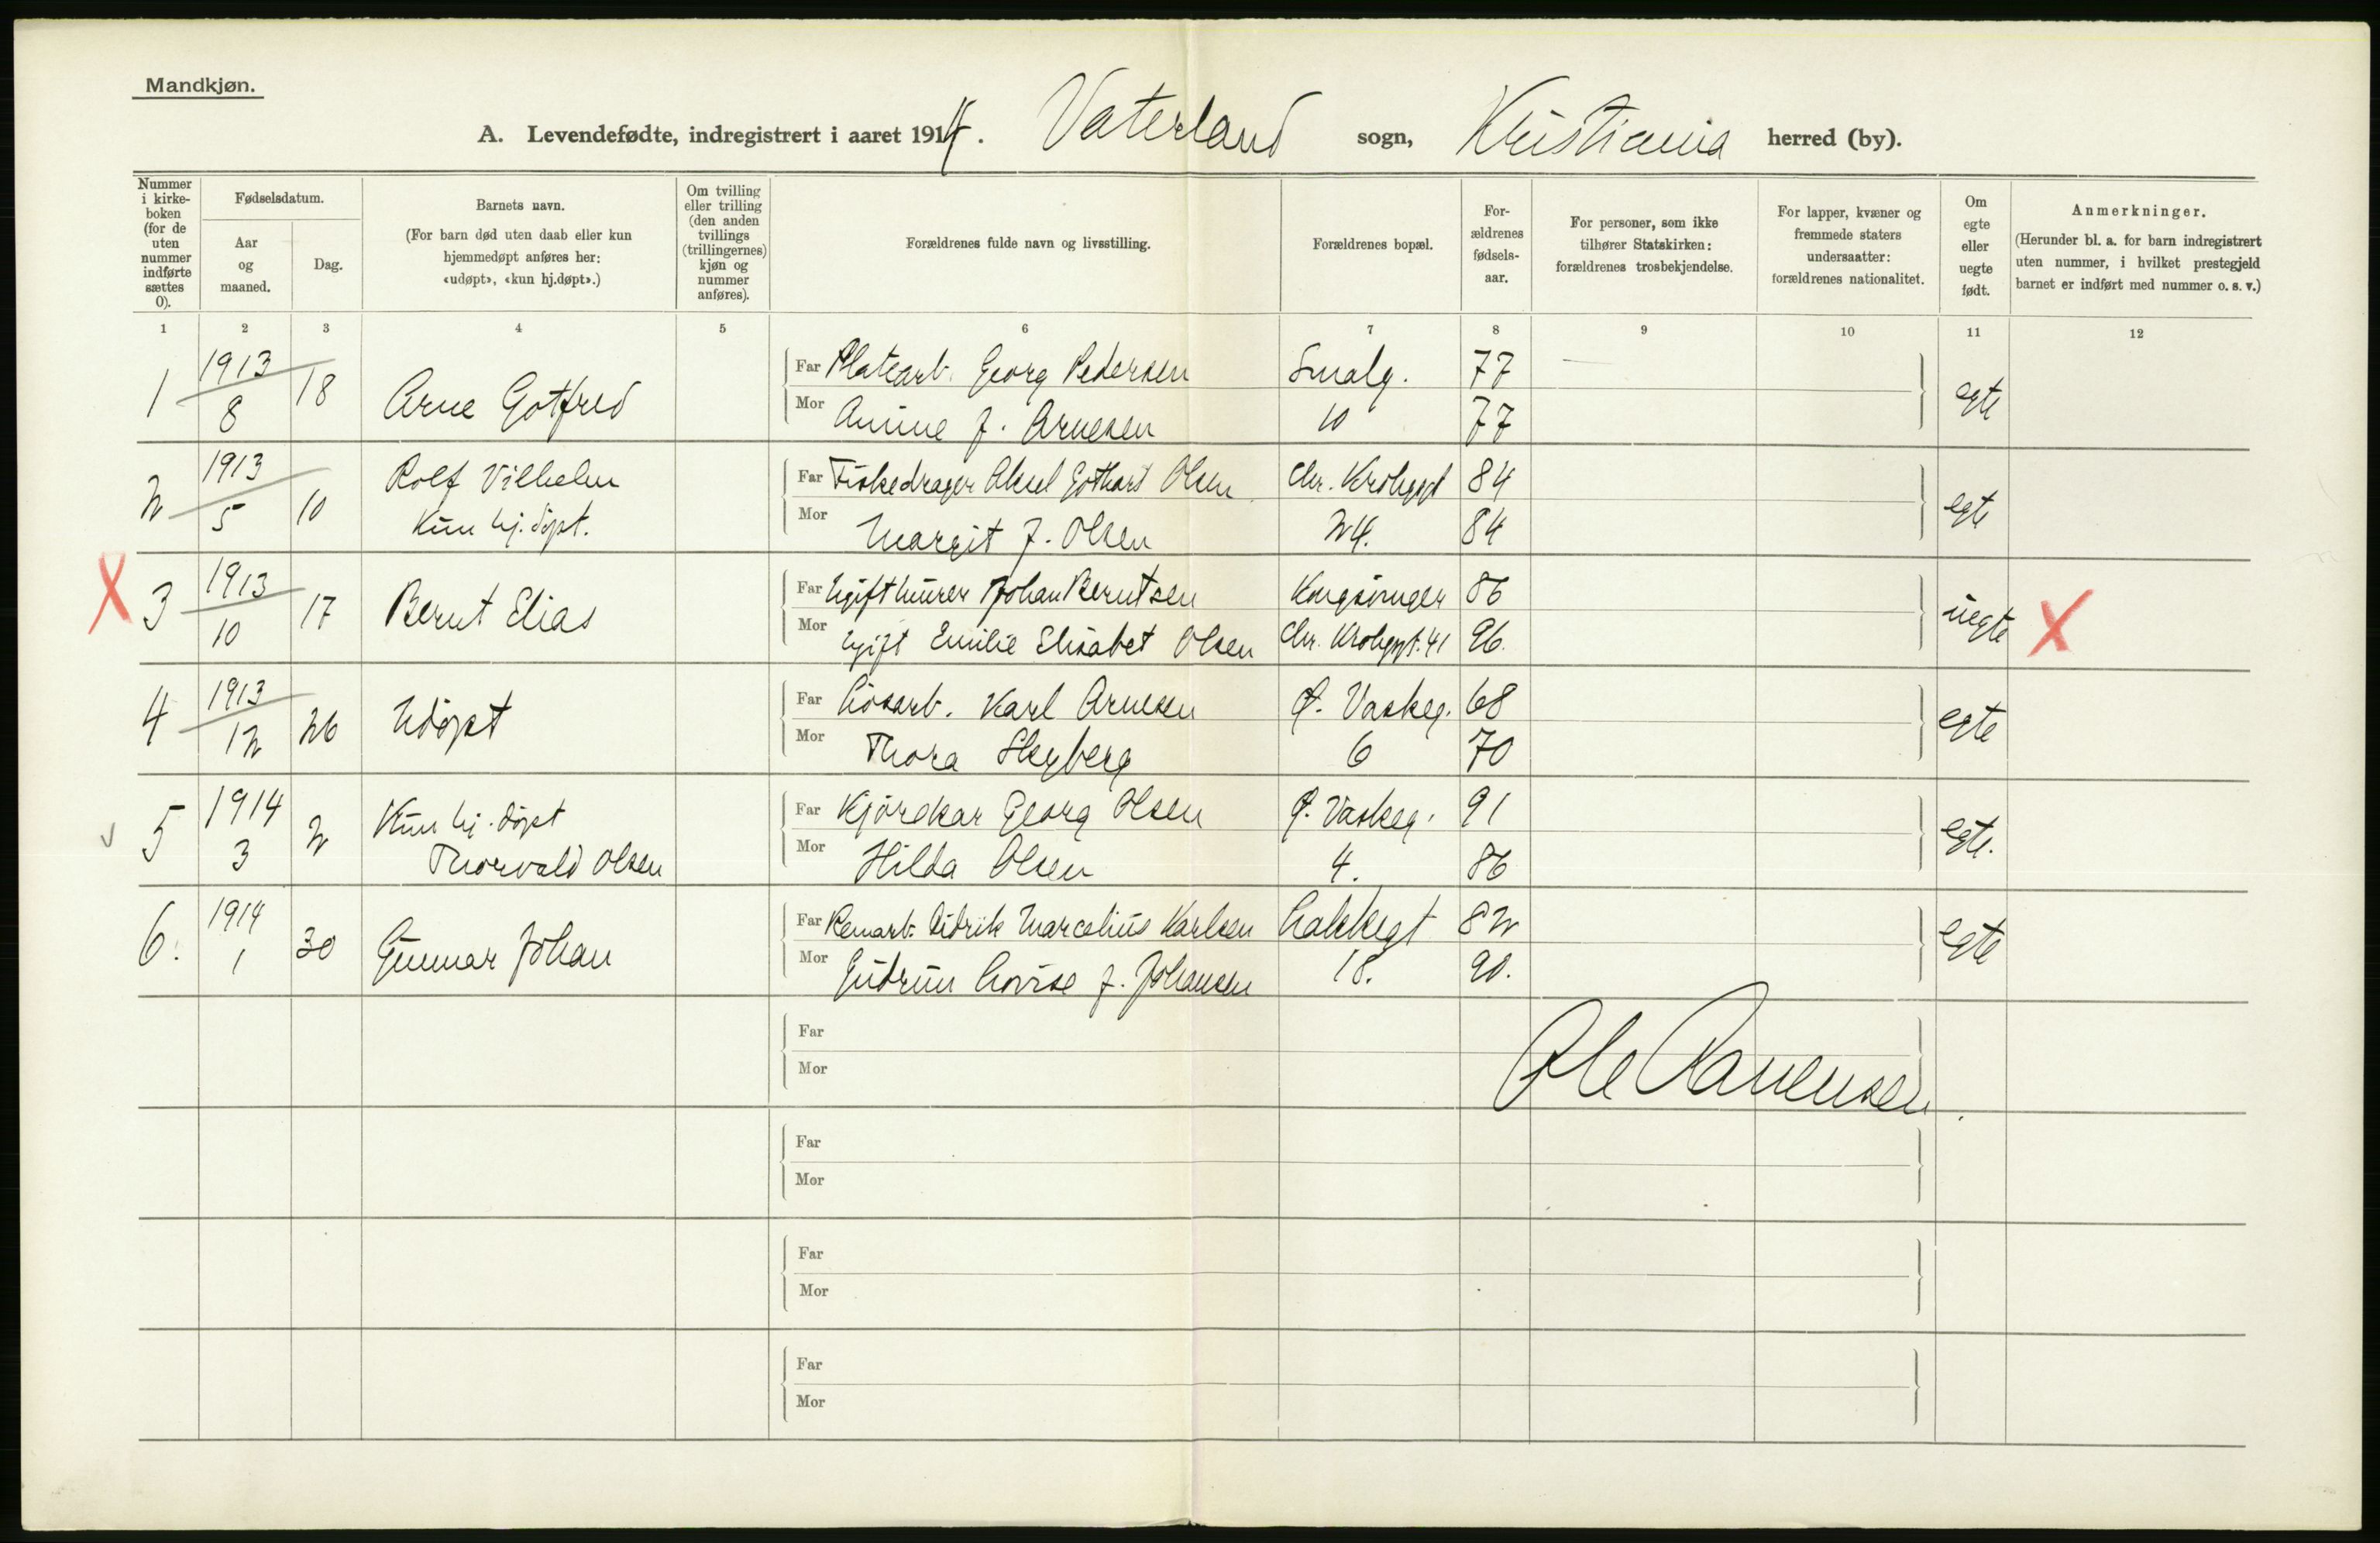 Mandkjøn.
A. Levendefødte, indregistrert i aaret 1914. Vaterland sogn, Kristiania herred (by).
Nummer i kirke-boken (for de uten nummer indførte sættes 0).
Fødselsdatum.
Aar og maaned.
Dag.
Barnets navn.
(For barn død uten daab eller kun hjemmedøpt anføres her: «udøpt», «kun hj.døpt».)
Om tvilling eller trilling (den anden tvillings (trillingernes) kjøn og nummer anføres).
Forældrenes fulde navn og livsstilling.
Forældrenes bopæl.
For-ældrenes fødsels-aar.
For personer, som ikke tilhører Statskirken: forældrenes trosbekjendelse.
For lapper, kvæner og fremmede staters undersaatter: forældrenes nationalitet.
Om egte eller uegte født.
Anmerkninger.
(Herunder bl. a. for barn indregistrert uten nummer, i hvilket prestegjeld barnet er indført med nummer o. s. v.)
1 2 3 4 5 6 7 8 9 10 11 12
1 1913 8 18 Arne Gotfred Far Platearb. Georg Pedersen Smalg. 77 egte
Mor Anine f. Arnesen 10 77
2 1913 5 10 Rolf Vilhelm Far Fiskedrager Aksel Gothard Olsen Chr. Krohgsgt 84 egte
Kun hj. døpt. Mor Margit f. Olsen 24. 84
X 3 1913 10 17 Bernt Elias Far Ugift murer Johan Berntsen Kongsvinger 86 uegte X
Mor Ugift Emilie Elisabet Olsen Chr. Krohgsgt. 41 96.
4 1913 12 26 Udøpt Far Løsarb. Karl Arnesen Ø. Vaskeg. 68 egte
Mor Thora 6 70
5 1914 3 2 Kun hj. døpt Far Kjørekar Georg Olsen Ø. Vaskeg. 91 egte.
Thorvald Olsen Mor Hilda Olsen 4. 86
6. 1914 1 30 Gunnar Johan Far Renarb. Didrik Marcelius Karlsen Lakkegt 82 egte
Mor Gudrun Lovise f. Johansen 18. 90.
Far
Mor
Ole
Far
Mor
Far
Mor
Far
Mor